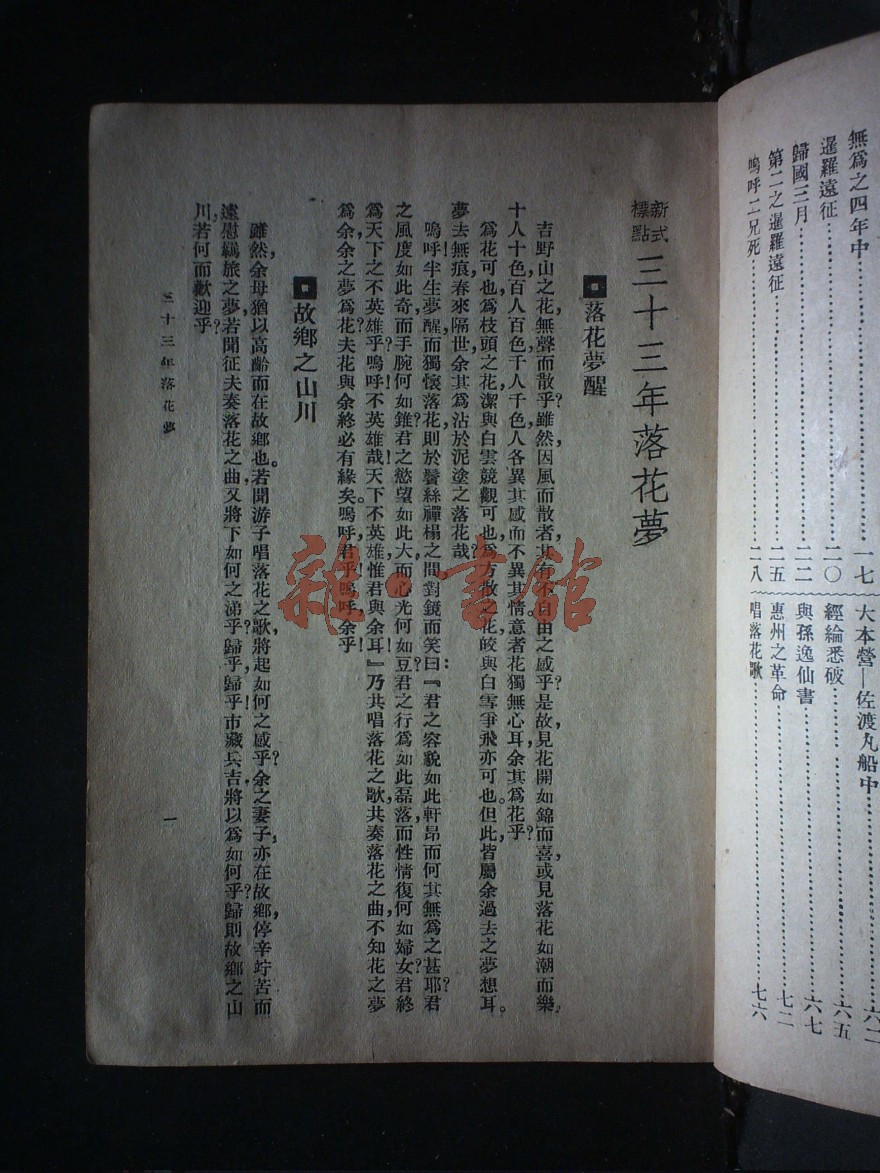 無爲之四年中……一七
暹羅遠征……二〇
歸國三月……二二
第二之暹羅遠征……二五
嗚呼二兄死……二八
大本營—佐渡丸船中……六二
經綸悉破……六五
與孫逸仙書……六七
惠州之革命……七二
唱落花歌……七六
新式標點 三十三年落花夢
落花夢醒
吉野山之花,無聲而散乎?雖然,因風而散者,其有不自由之感乎?是故見花開如錦而喜,或見落花如潮而樂,
十人十色,百人百色,千人千色,人各異其感而不異其情意者,花獨無心耳,余其爲花乎?
爲花可也,爲枝頭之花,潔與白雲競觀可也,爲方散之花,皎與白雪爭飛亦可也。但此皆屬余過去之夢想耳。
夢去無痕,春來隔世,余其爲沾於泥塗之落花哉?
嗚呼!半生夢醒,而獨懷落花,則於鬢絲禪榻之間,對鏡而笑曰:『君之容貌如此軒昂,而何其無爲之甚耶?君
之風度如此奇,而手腕何如錐?君之慾望如此大,而心光何如豆?君之行爲如此磊落,而性情復何如婦女?君終
爲天下之不英雄乎?嗚呼!不英雄哉!天下不英雄,惟君與余耳!』乃共唱落花之歌,共奏落花之曲,不知花之夢
爲余,余之夢爲花,夫花與余終必有緣矣。嗚呼君乎!嗚呼余乎!
故鄉之山川
雖然,余母猶以高齡而在故鄉也。若聞游子唱落花之歌,將起如何之感乎?余之妻子,亦在故鄉,停辛竚苦,而
遠慰羈旅之夢,若聞征夫奏落花之曲,又將下如何之涕乎?歸乎!歸乎!市藏兵吉,將以爲如何乎?歸則故鄉之山
川,若何而歡迎乎?
三十三年落花夢
一
雜·書館